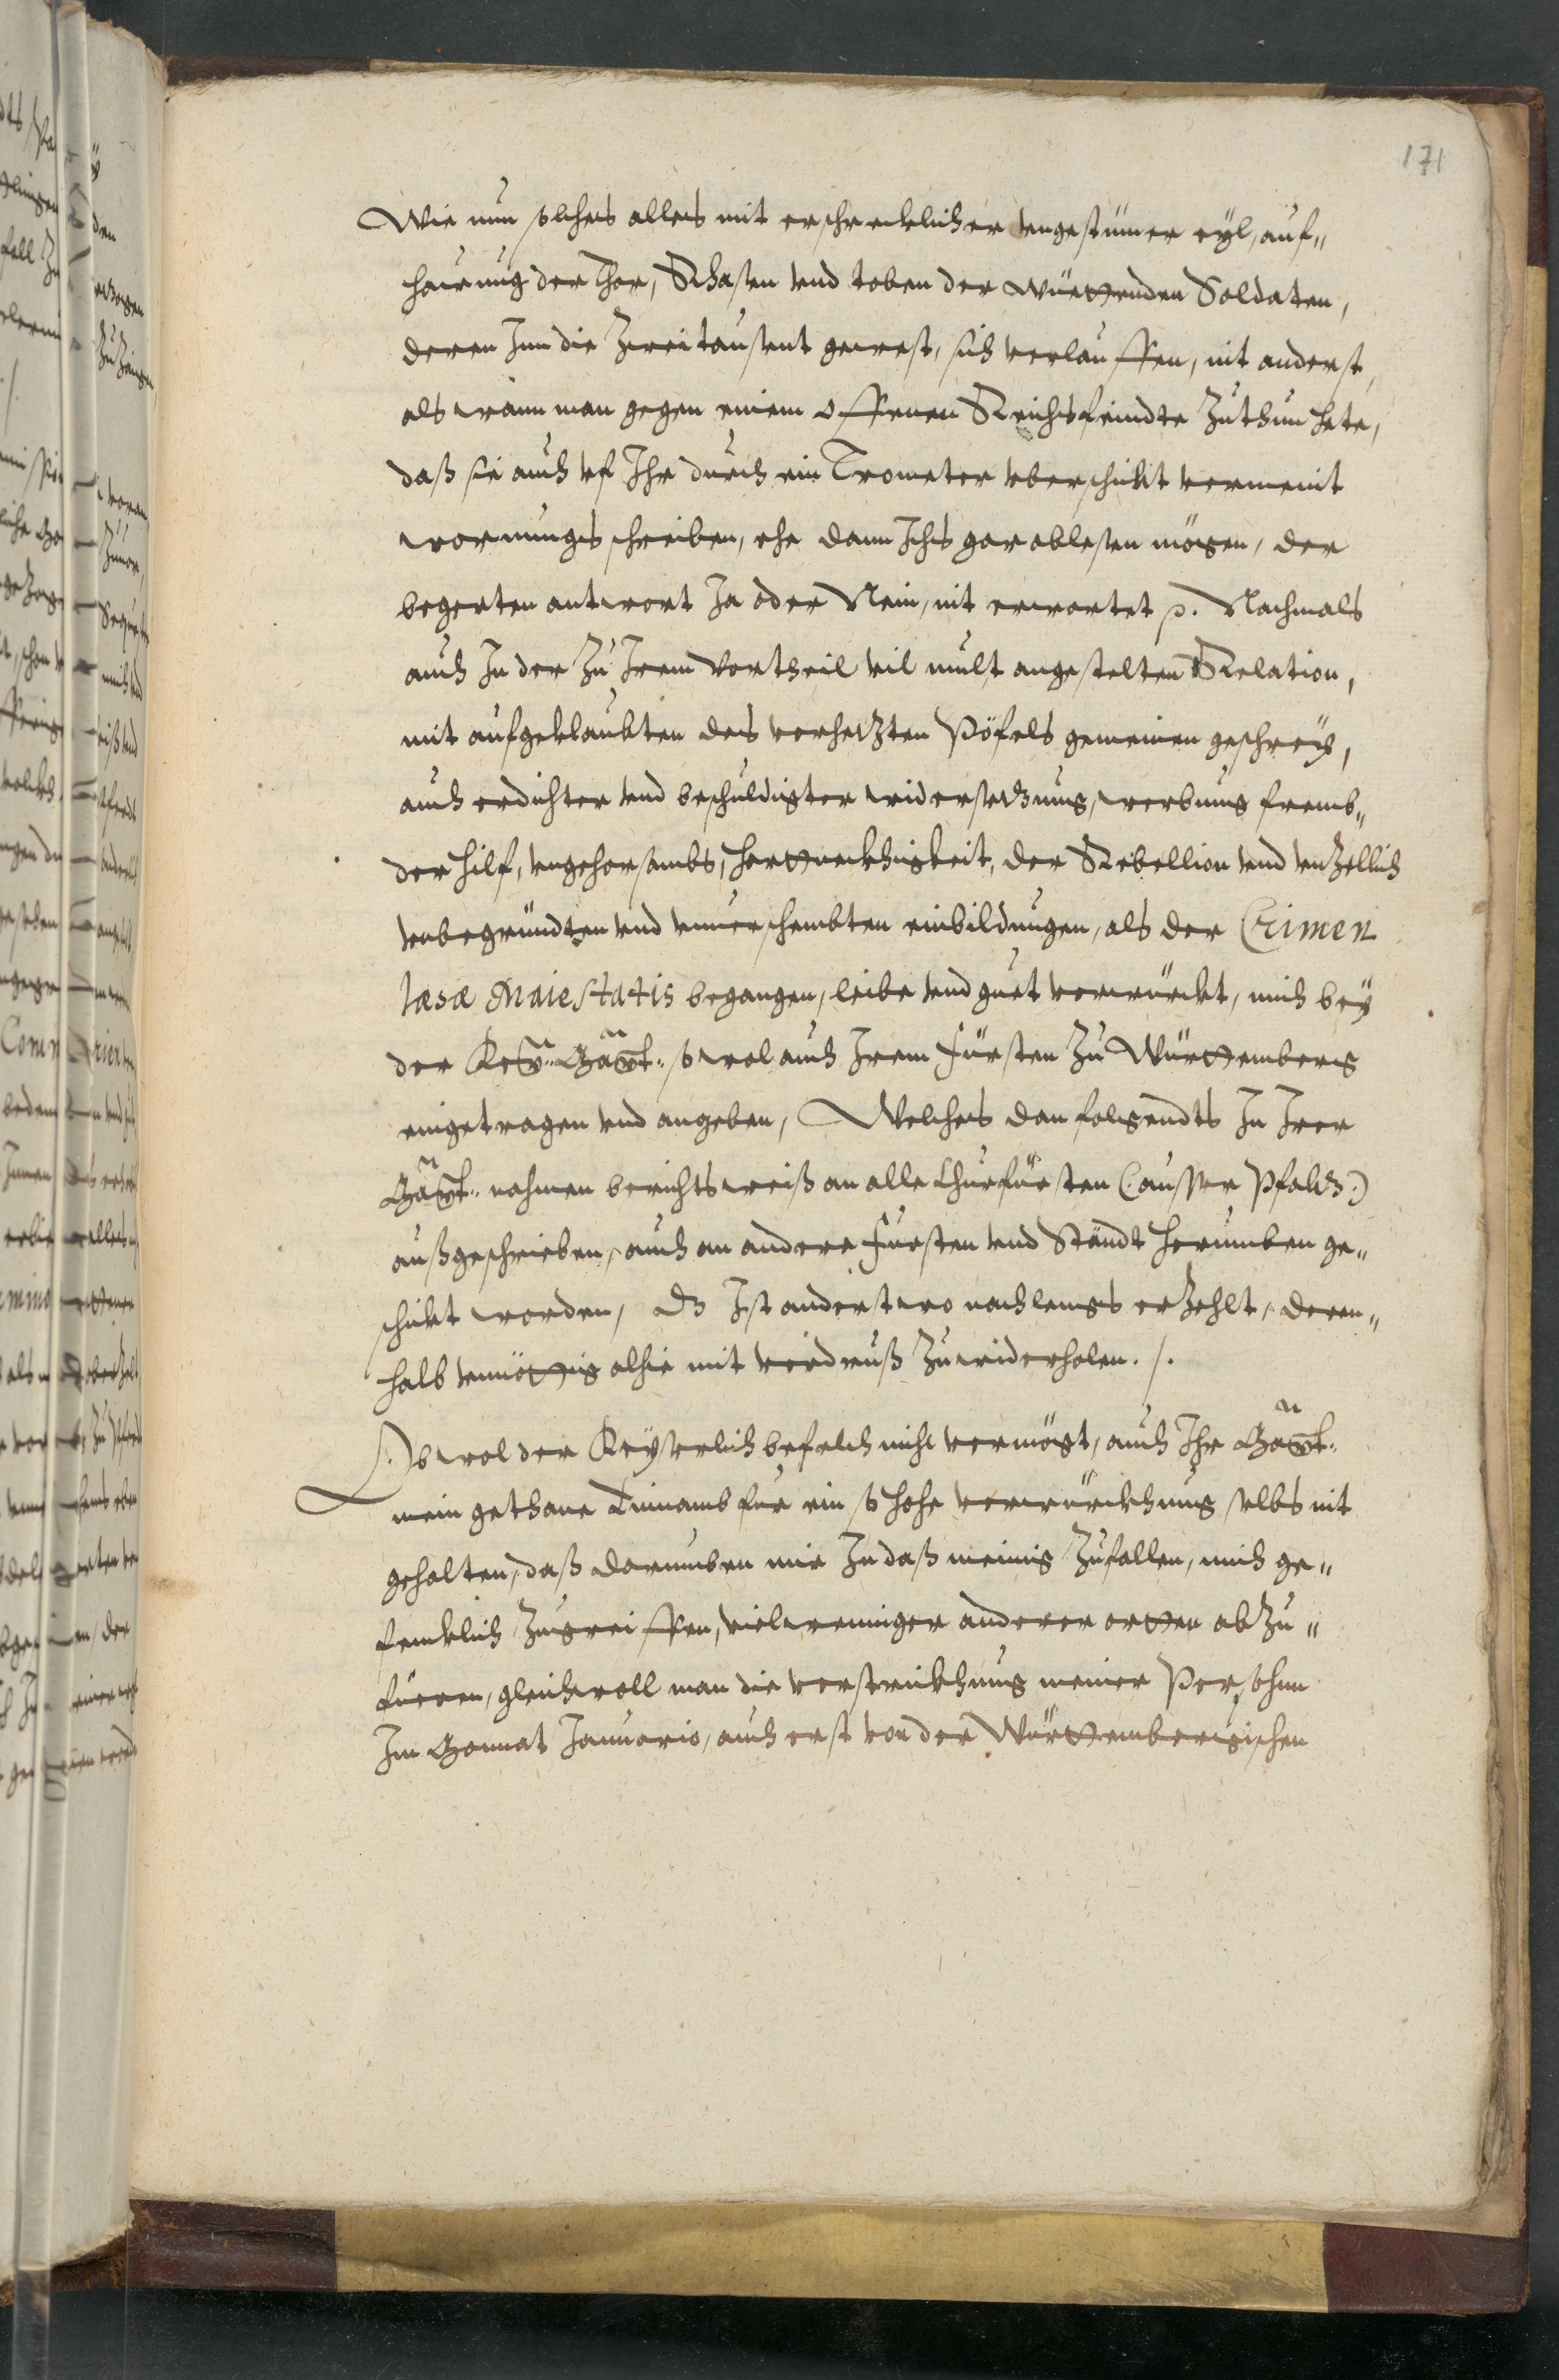 171
Wie nun solches alles mit erschrecklicher vngestümer eyl, auf„
hawung der Thor, Rasen vnd toben der wüettenden Soldaten,
deren Inn die Zwei tausent gewest, sich verlauffen, nit anderst,
als wann man gegen einem offenen Reichsfeindte zuthun hete,
daß sie auch vf Ihr durch ein Trometer vberschickt vermeint
warnungs schreiben, ehe dann Ichs gar ablesen mögen, der
begerten antwort Ja oder Nein, nit erwartet p. Nachmals
auch In der Zu Irem vortheil vil mult angestelten Relation,
mit aufgeklaubten des verhetzten Pöfels gemeinen geschreÿ,
auch erdichter vnd beschuldigter widersetzung, werbung fremb„
der hilf, vngehorsambs, Hartneckhigkeit, der Rebellion vnd vnzellich
vnbegründten vnd vnuerschembten einbildungen, als der Crimen
læsæ Maiestatis begangen, leibe vnd guet verwürckt, mich beÿ
der Keÿ: Maÿt: so wol auch Irem Fürsten zu Württemberg
eingetragen vnd angeben, Welches dan folgendts In Irer
Maÿt: nahmen berichtsweiß an alle Churfürsten (ausser Pfaltz)
außgeschrieben, auch an andere Fürsten vnd Ständt herumben ge„
schickt worden, dz Ist anderstwo nach lengs erzehlt, deren„
halb vnnöttig alhie mit verdruß zuwiderholen. /.
Obwol der Keÿserlich befelch nicht vermögt, auch Ihr Maÿt:
mein gethane Einnamb für ein so hohe verwürckhung selbs nit
gehalten, daß darumben mir In daß meinig zufallen, mich ge„
fencklich zugreiffen, viel weniger anderer orten abzu„
füeren, gleichwoll man die verstrickhung meiner Persohnn
Im Monnat Januario, auch erst von der Württembergischen